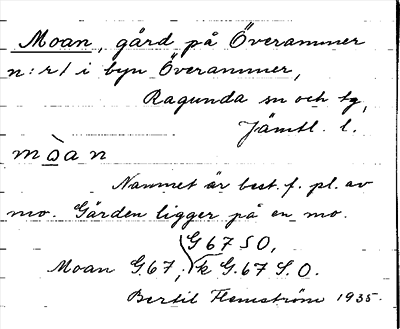 Moan, gård på Överammer
n:r 1 i byn Överammer,
Ragunda sn och tg,
Jämtl. l.
mòan
Namnet är best. f. pl. av
mo. Gården ligger på en mo.
G 67 S O,
Moan G. 67, k G. 67 S. O.
Bertil Flemström 1935.